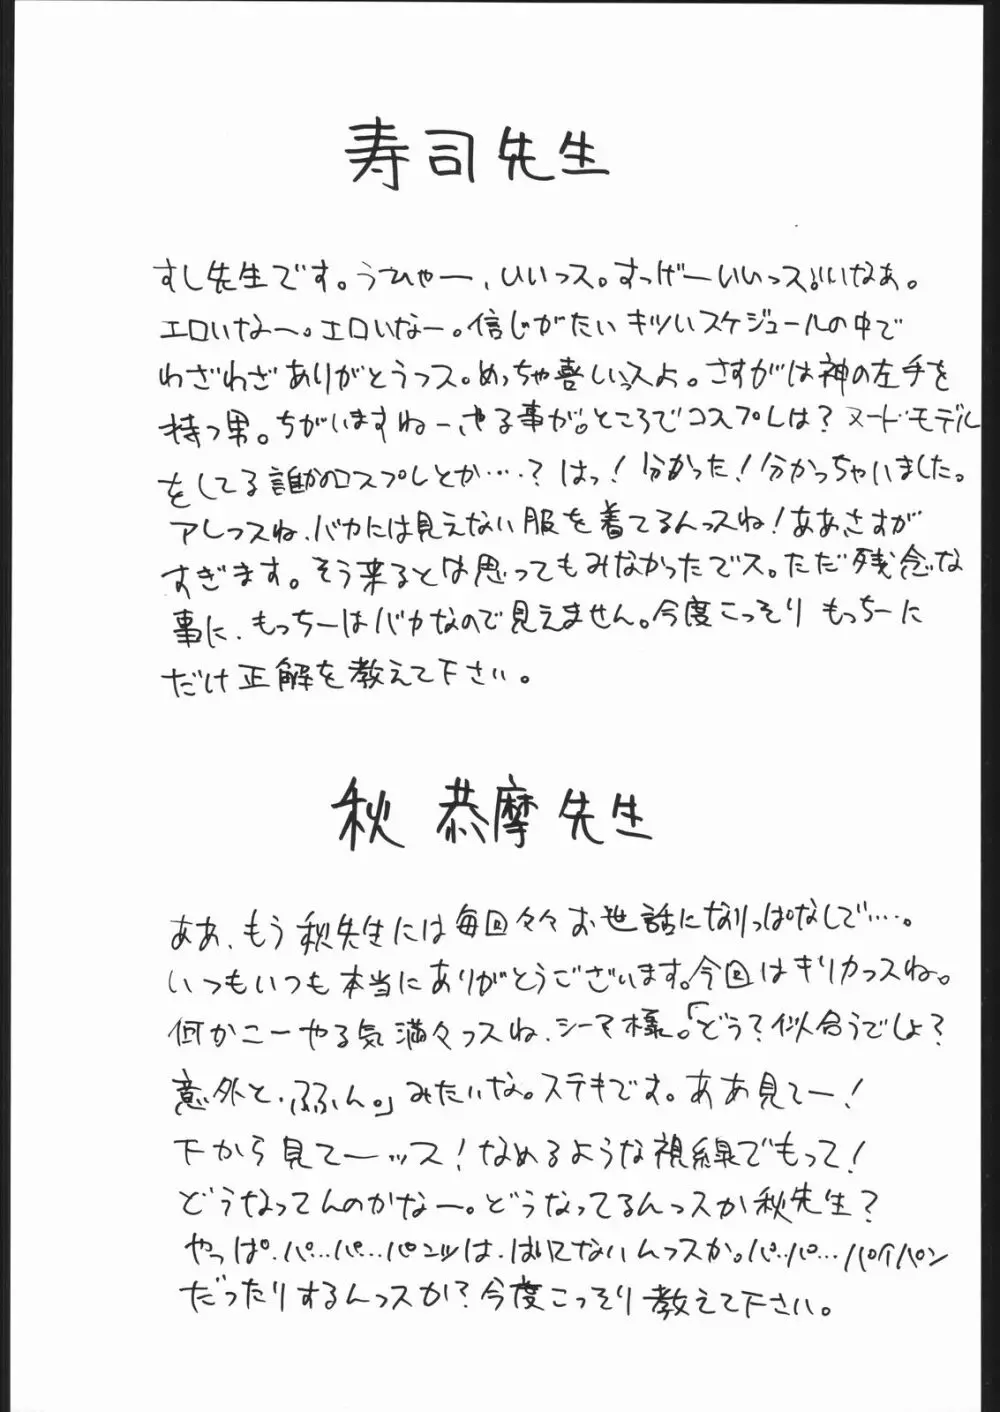 寿司先生
すし先生です。うひゃー、いいっス。すっげーいいっス。いいなあ。
エロいなー。エロいなー。信じがたいキツいスケジュールの中で
わざわざありがとうっス。めっちゃ喜しいっスよ。さすがは神の左手を
持つ男。ちがいますねーやる事が。ところでコスプレは?ヌードモデル
をしてる誰かのコスプレとか…?はっ!分かった!分かっちゃいました。
アレっスね、バカには見えない服を着てるんっスね!ああさすが
すぎます。そう来るとは思ってもみなかったでス。ただ残念な
事に、もっちーはバカなので見えません。今度こっそりもっちーに
だけ正解を教えて下さい。
秋 恭摩先生
ああ、もう秋先生には毎回々々お世話になりっぱなしで…。
いつもいつも本当にありがとうございます。今回はキリカっスね。
何かこーやる気満々っスね、シーマ様。「どう?似合うでしょ?
意外と、ふふん。」みたいな。ステキです。ああ見てー!
下から見てーッス!なめるような視線でもって!
どうなってんのかなー。どうなってるんっスか秋先生?
やっぱ、パ…パ…パンツは、はいてないんっスか。パ…パ…パイパン
だったりするんっスか?今度こっそり教えて下さい。